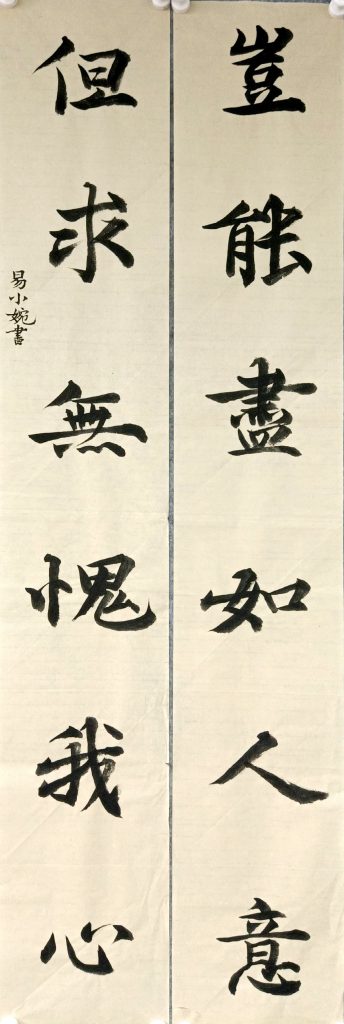 豈能盡如人意
但求無愧我心
易小婉書